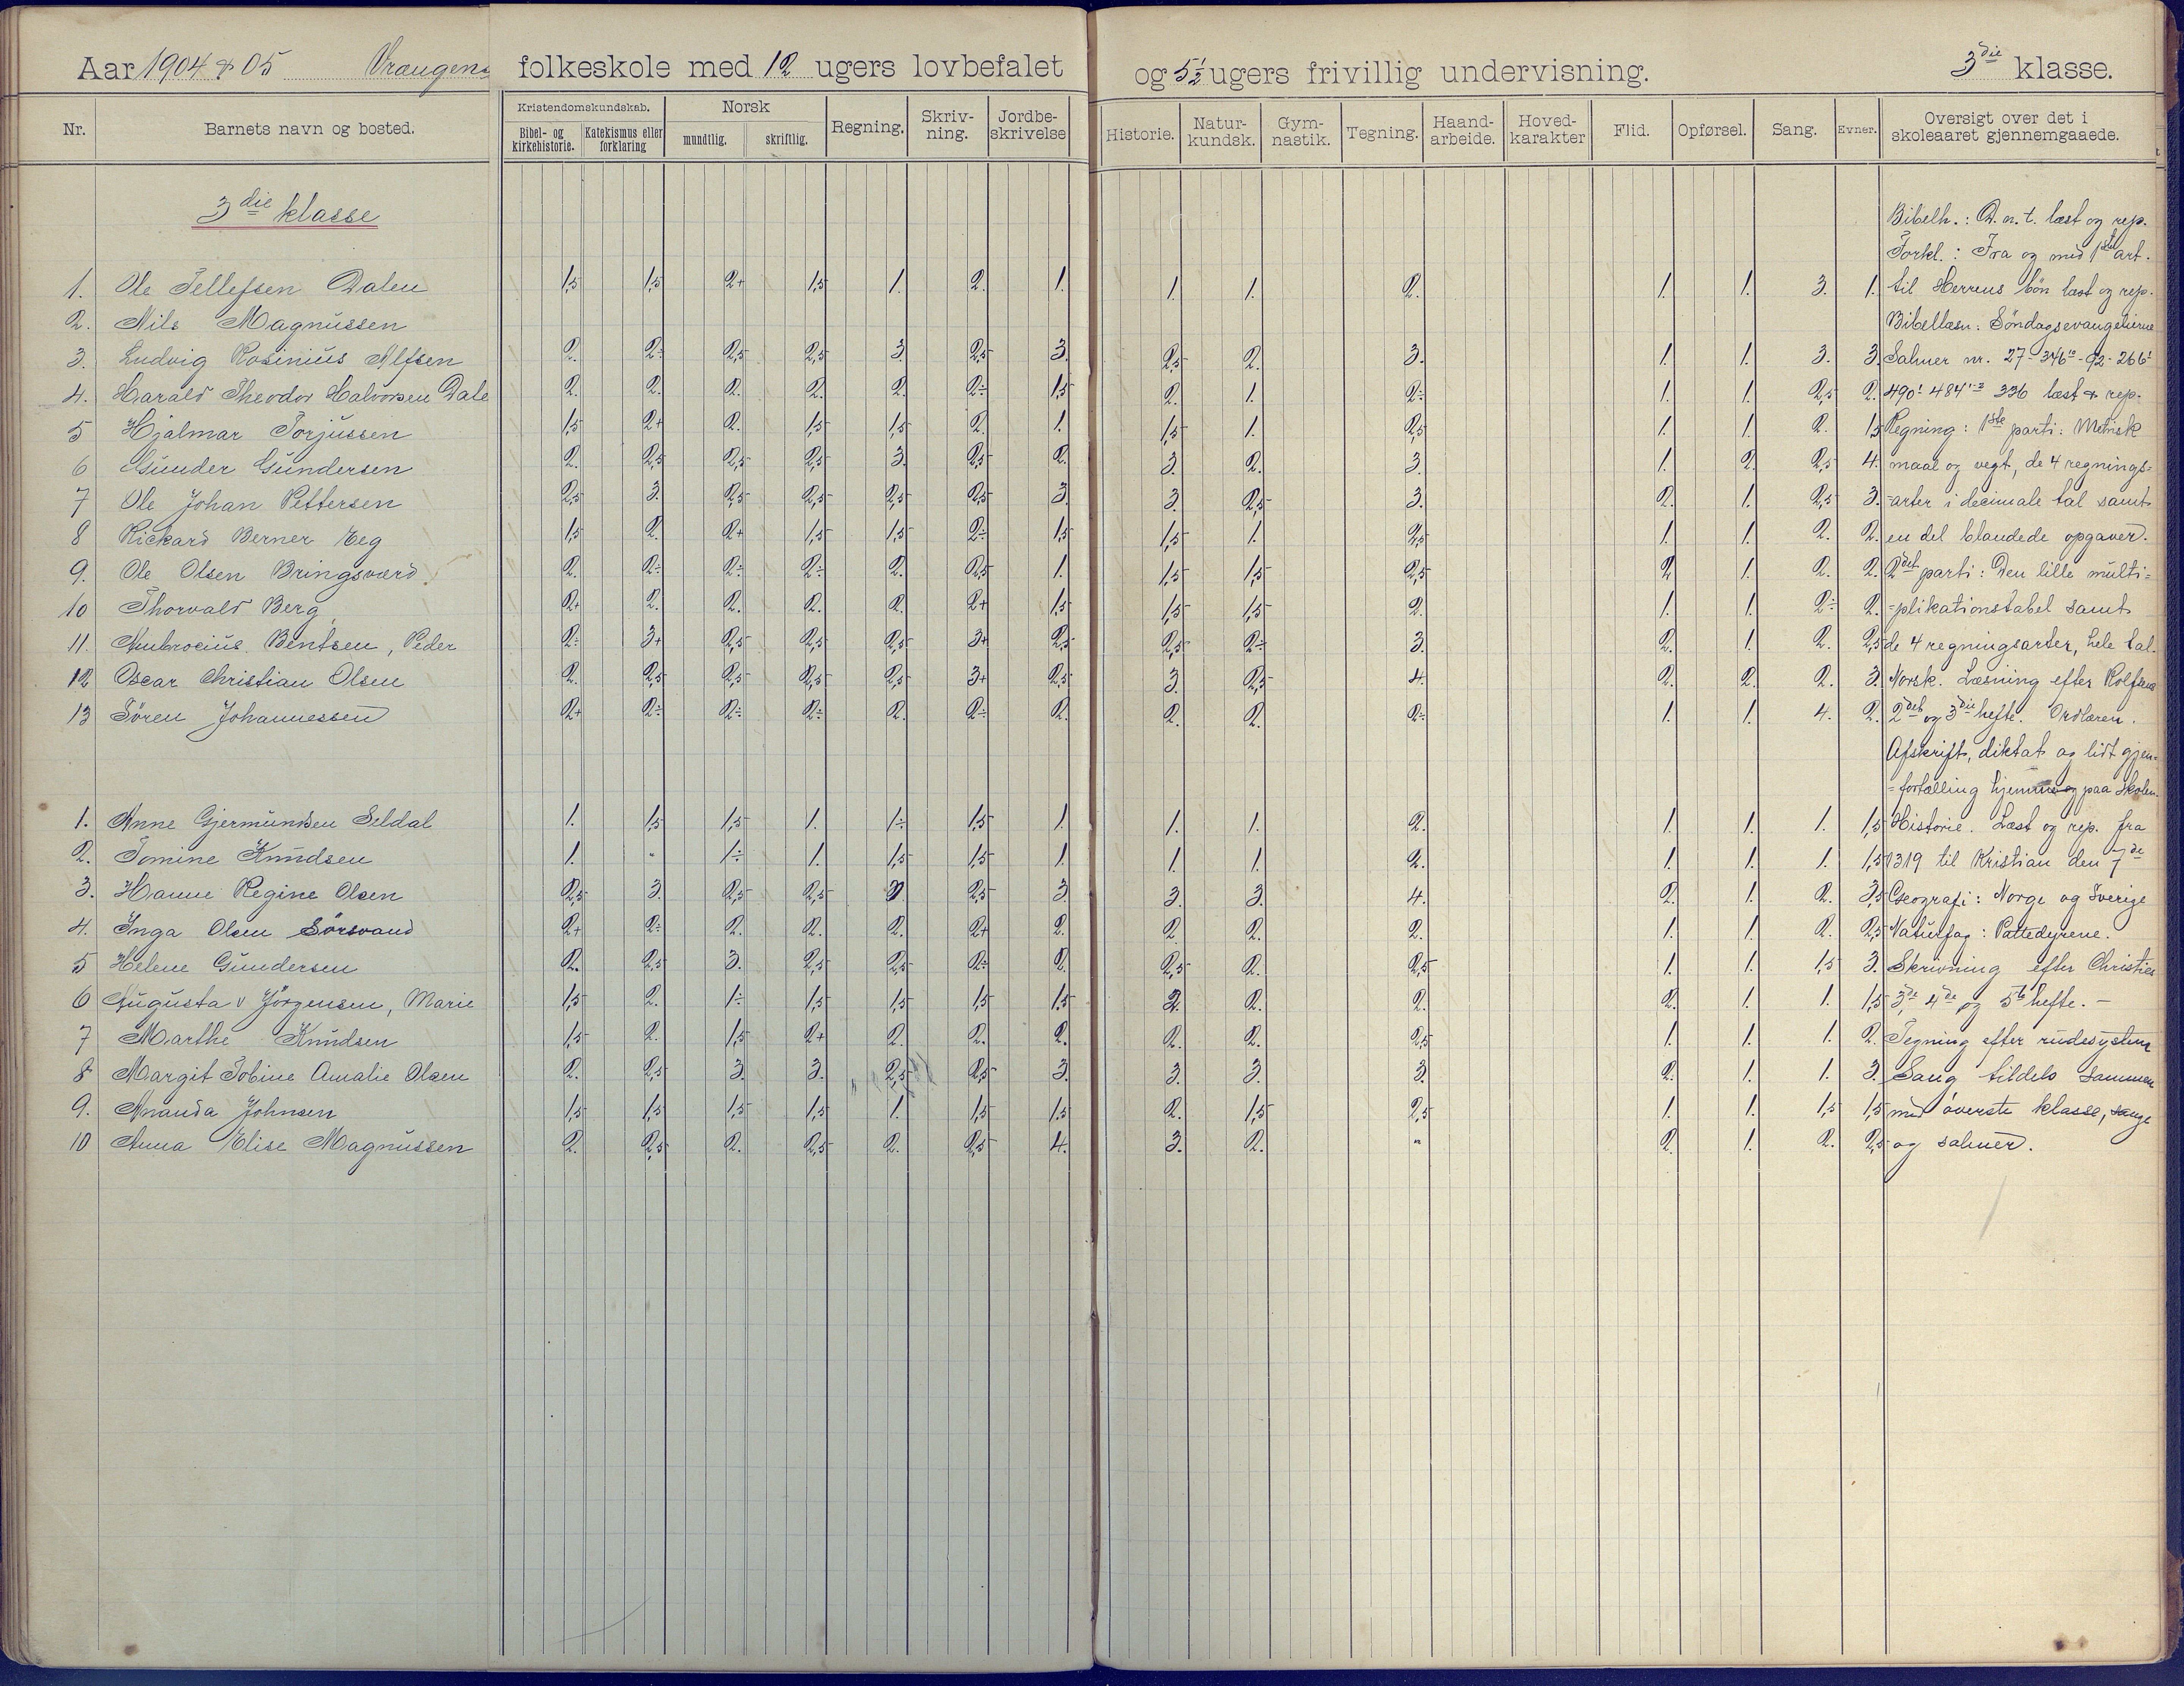 Aar 1904 & 05 Vrangens folkeskole med 12 ugers lovbefalet og 5½ ugers frivillig undervisning. 3die klasse.
Nr. Barnets navn og bosted. Kristendomskundskab. Bibel- og kirkehistorie. Katekismus eller forklaring Norsk mundtlig. skriftlig. Regning. Skriv-ning. Jordbe-skrivelse Historie. Natur-kundsk. Gym-nastik. Tegning. Haand-arbeide. Hoved-karakter Flid. Opførsel. Sang. Evner. Oversigt over det i skoleaaret gjennemgaaede.
3die klasse
Bibelh.: D. n. t. læst og rep.
Forkl.: Fra og med 1ste art.
1. Ole Tellefsen Dalen 1,5 1,5 2+ 1,5 1. 2. 1. 1. 1. 2. 1. 1. 3. 1. til Herrens bøn læst og rep.
2. Nils Magnussen Bibellæsn: Söndagsevangelierne
3. Ludvig Rosinius Alfsen 2. 2÷ 2,5 2,5 3. 2,5 3. 2,5 2. 3. 1. 1. 3. 3. Salmer nr. 27-346-92-266
4. Harald Theodor Halvorsen Dale 2. 2. 2. 2. 2. 2÷ 1,5 2. 1. 2÷ 1. 1. 2,5 2. 490 484 336 læst & rep.
5 Hjalmar Torjussen 1,5 2+ 2. 1,5 1,5 2. 1. 1,5 1. 2,5 1. 1. 2. 1,5 Regning: 1ste parti: Metrisk
6 Gunder Gundersen 2. 2,5 2,5 2,5 3. 2,5 2. 3. 2. 3. 1. 2. 2,5 4. maal og vegt, de 4 regnings=
7 Ole Johan Pettersen 2,5 3. 2,5 2,5 2,5 2,5 3. 3. 2,5 3. 2. 1. 2,5 3. =arter i decimale tal samt
8 Rickard Berner Eeg 1,5 2. 2+ 1,5 1,5 2÷ 1,5 1,5 1. 2,5 1. 1. 2. 2. en del blandede opgaver.
9. Ole Olsen Bringsværd. 2. 2÷ 2÷ 2÷ 2. 2,5 1. 1,5 1,5 2,5 2. 1. 2. 2. 2det parti: Den lille multi=
10 Thorvald Berg 2+ 2. 2. 2. 2. 2+ 1,5 1,5 1,5 2. 1. 1. 2÷ 2. =plikationstabel samt
11. Ambrocius Bentsen, Peder 2÷ 3+ 2,5 2,5 2,5 3+ 2,5 2,5 2÷ 3. 2. 1. 2. 2,5 de 4 regningsarter, hele tal.
12 Oscar Christian Olsen 2. 2,5 2,5 2,5 2,5 3+ 2,5 3. 2,5 4. 2. 2. 2. 3. Norsk. Læsning efter Rolfsens
13 Sören Johannessen 2+ 2÷ 2÷ 2÷ 2. 2÷ 2. 2. 2. 2÷ 1. 1. 4. 2. 2det og 3die hefte. Ordlæren.
Afskrift, diktat og lidt gjen=
=fortælling hjemme og paa skolen.
1. Anne Gjermundsen Seldal 1. 1,5 1,5 1. 1÷ 1,5 1. 1. 1. 2. 1. 1. 1. 1,5 Historie. Læst og rep. fra
2. Tomine Knudsen 1. " 1÷ 1. 1,5 1,5 1. 1. 1. 2. 1. 1. 1. 1,5 1319 til Kristian den 7de
3. Hanne Regine Olsen 2,5 3. 2,5 2,5 3. 2,5 3. 3. 3. 4. 2. 1. 2. 3,5 Geografi: Norge og Sverige
4. Inga Olsen Sörsvand 2+ 2÷ 2. 2. 2. 2+ 2. 2. 2. 2. 1. 1. 2. 2,5 Naturfag: Pattedyrene.
5 Helene Gundersen 2. 2,5 3. 2,5 2,5 2÷ 2. 2,5 2. 2,5 1. 1. 1,5 3. Skrivning efter Christies
6 Augusta v Jörgensen, Marie 1,5 2. 1÷ 1,5 1,5 1,5 1,5 2. 2. 2. 2. 1. 1. 1,5 3de, 4de og 5te hefte. –
7 Marthe Knudsen 1,5 2. 1,5 2+ 2. 2. 2. 2. 2. 2,5 1. 1. 1. 2. Tegning efter rudesystem
8 Margit Tobine Amalie Olsen 2. 2,5 3. 3. 2,5 2,5 3. 3. 3. 3. 2. 1. 1. 3. Sang tildels sammen
9. Ananda Johnsen 1,5 1,5 1,5 1,5 1. 1,5 1,5 2. 1,5 2,5 1. 1. 1,5 1,5 med överste klasse, sange
10 Anna Elise Magnussen 2. 2,5 2. 2,5 2. 2,5 4. 3. 2. " 2. 1. 2. 2,5 og salmer.